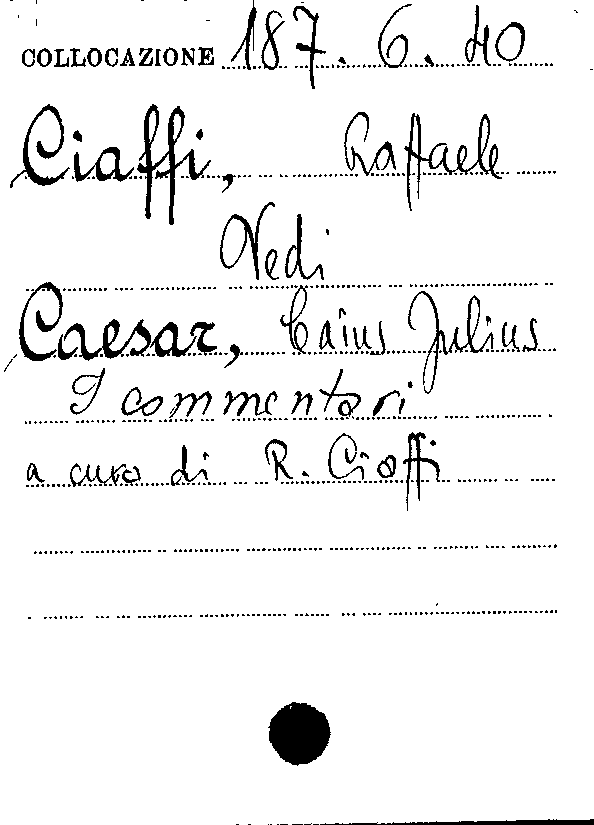 COLLOCAZIONE 187. 6. 40
Ciaffi, Raffaele
Vedi
Caesar, Caius Julius
I commentari
a cura di R. Ciaffi